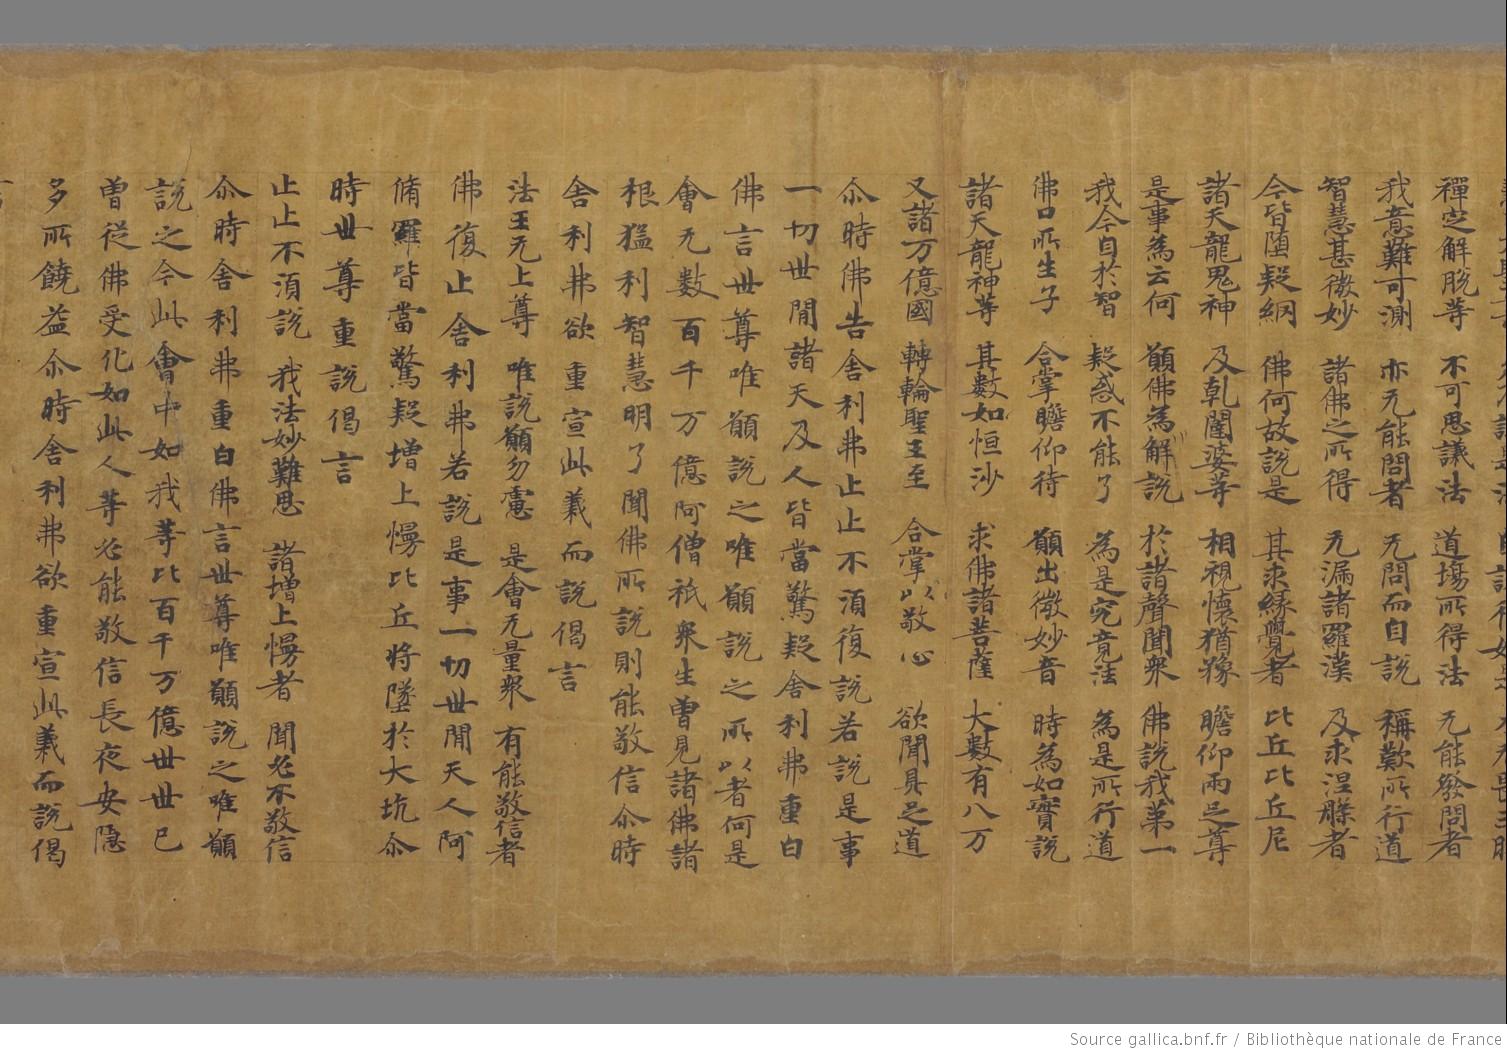 禪定解脫等 不可思議法 道場所得法 无能發問者
我意難可測 亦无能問者 无問而自說 稱歎所行道
智慧甚微妙 諸佛之所得 无漏諸羅漢 及求涅槃者
今皆堕疑網 佛何故說是 其求縁覺者 比丘比丘尼
諸天龍鬼神 及乹闥婆等 相視懷猶豫 瞻仰兩足尊
是事為云何 願佛為解說 於諸聲聞衆 佛說我苐一
我今自於智 疑惑不能了 為是究竟法 為是所行道
佛口所生子 合掌瞻仰待 願出微妙音 時為如實說
諸天龍神等 其數如恒沙 求佛諸菩薩 大數有八万
又諸万億國 轉輪聖王至 合掌以敬心 欲聞具足道
尒時佛告舍利弗止止不須復說若說是事
一切世閒諸天及人皆當驚疑舍利弗重白
佛言世尊唯願說之唯願說之所以者何是
會无数百千万億阿僧祇衆生曽見諸佛諸
根猛利智慧明了聞佛所說則能敬信尒時
舍利弗欲重宣此義而說偈言
法王无上尊 唯說願勿慮 是會无量衆 有能敬信者
佛復止舍利弗若說是事一切世閒天人阿
脩羅皆當驚疑増上慢比丘将墜於大坑尒
時世尊重說偈言
止止不須說 我法妙難思 諸増上慢者 聞必不敬信
尒時舍利弗重白佛言世尊唯願說之唯願
說之今此會中如我等比百千万億世世已
曽從佛受化如此人等必能敬信長夜安隱
多所饒益尒時舍利弗欲重宣此義而說偈
言
Source gallica.bnf.fr / Bibliothèque nationale de France